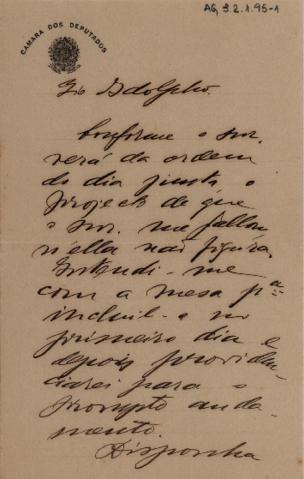 AG, 3.2.1.95-1
CAMARA DOS DEPUTADOS
Adolpho.
Conforme o snr.
verá da ordem
do dia junta o
projecto de que
o snr. me fallou
n'ella não figura.
Entendi-me
com a mesa pª
incluil-o no
primeiro dia e
depois providen-
ciarei para o
prompto anda-
mento.
Disponha